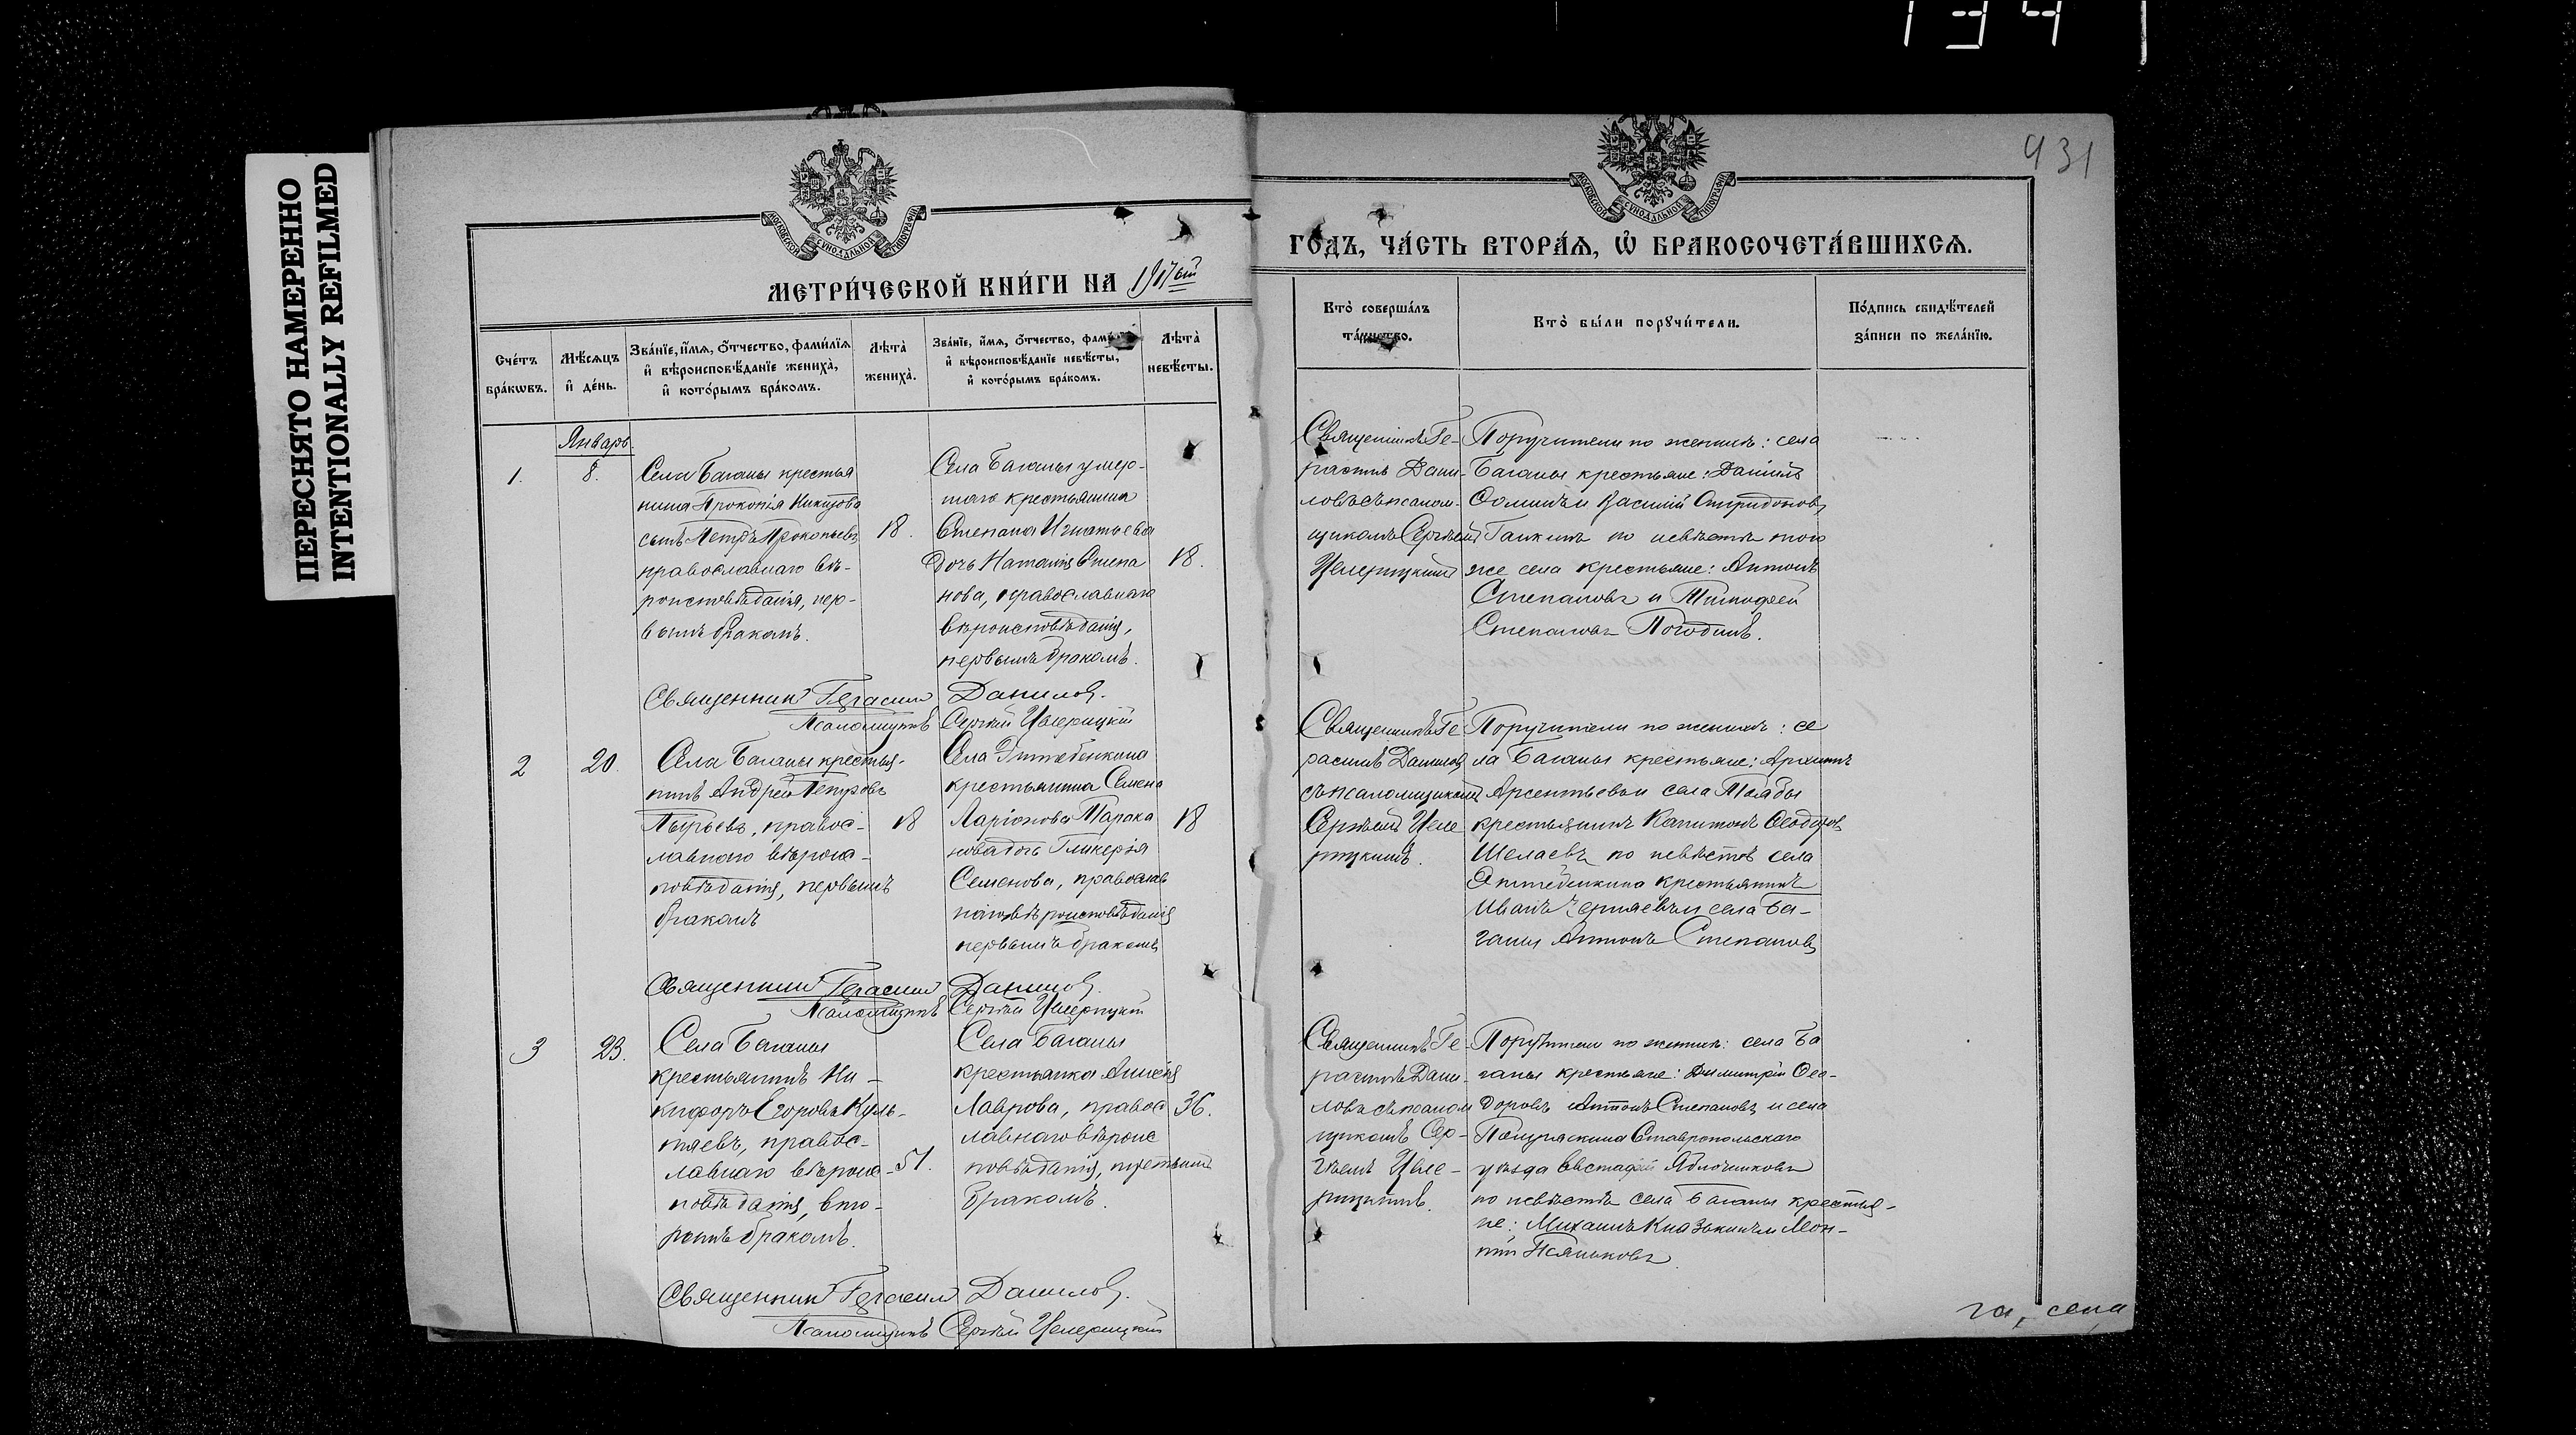 134
ПЕРЕСНЯТО НАМЕРЕННО
INTENTIONALLY REFILMED
431
МОСКОВСКОЙ СѴНОДАЛЬНОЙ ТИПОГРАФІИ
МОСКОВСКОЙ СѴНОДАЛЬНОЙ ТИПОГРАФІИ
МЕТРИ́ЧЕСКОЙ КНИ́ГИ НА 1917ый
ГО́ДЪ, ЧА́СТЬ ВТОРА́Ѧ, Ѡ҆ БРАКОСОЧЕТА́ВШИХСѦ.
Сче́тъ бра́кѡвъ.
Мѣ́сѧцъ и҆ де́нь.
Зва́нїе, и҆́мѧ, ѻ҆́тчество, фами́лїѧ
и҆ вѣроисповѣ́данїе жениха̀,
и҆ кото́рымъ бра́комъ.
Лѣта̀ жениха̀.
Зва́нїе, и҆́мѧ, ѻ҆́тчество,
и҆ вѣроисповѣ́данїе невѣ́сты,
и҆ кото́рымъ бра́комъ.
Лѣта̀ невѣ́сты.
Кто̀ соверша́лъ
та́инство.
Кто̀ бы́ли порꙋчи́тели.
По́дпись свидѣ́телей
за́писи по жела́нїю.
Январь
1.
8.
Села Баганы крестья
нина Прокопія Никитова
сынъ Петръ Прокопьевъ
православнаго вѣ-
роисповѣданія, пер-
вымъ бракомъ.
18.
Села Баганы умер-
шаго крестьянина
Степана Игнатьева
дочь Наталія Степа
нова, православнаго
вѣроисповѣданія,
первымъ бракомъ.
18.
Священникъ Ге-
расимъ Дани-
ловъ съ псалом-
щикомъ Сергѣемъ
Поручители по женихѣ: села
Баганы крестьяне: Даніилъ
Ѳоминъ и Василій Спиридоновъ
по невѣстѣ того
же села крестьяне: Антонъ
Степановъ и Тимоѳей
Степановъ Погодинъ.
Священникъ Герасим Данилов.
Псаломщикъ Сергѣй
2
20.
Села Баганы крестья-
нинъ Андрей Петровъ
Пырьевъ, правос-
лавнаго вѣроис-
повѣданія, первымъ
бракомъ
18
Села
крестьянина Семена
Ларіонова Тарака
нова дочь Гликерія
Семенова, православ
наго вѣроисповѣданія
первымъ бракомъ
18
Священникъ Ге
расимъ Даниловъ
съ псаломщикомъ
Сергѣемъ
Поручители по женихѣ: се
ла Баганы крестьяне: Архипъ
Арсентьевъ и села
крестьянинъ Капитонъ Ѳеодоровъ
Шелаевъ по невѣстѣ села
крестьянинъ
Иванъ и села Ба-
ганы Антонъ Степановъ
Священникъ Герасим Данилов.
Псаломщикъ Сергѣй
3
23.
Села Баганы
крестьянинъ Ни-
кифоръ Егоровъ Куль-
тяевъ, правос-
лавнаго вѣроис-
повѣданія, вто-
рымъ бракомъ.
51.
Села Баганы
крестьянка
Лаврова, правос
лавнаго вѣроис
повѣданія, третьимъ
бракомъ.
36.
Священникъ Ге-
расимъ Дани-
ловъ съ псалом
щикомъ Сер-
гѣемъ
Поручители по женихѣ: села Ба
ганы крестьяне: Димитрій Ѳео-
доровъ Антонъ Степановъ и села
Ставропольскаго
уѣзда Евстафій Яблочниковъ
по невѣстѣ села Баганы крестья-
не: Михаилъ Князькинъ и Леон-
тій
Священникъ Герасим Данилов.
Псаломщикъ Сергѣй
га, села